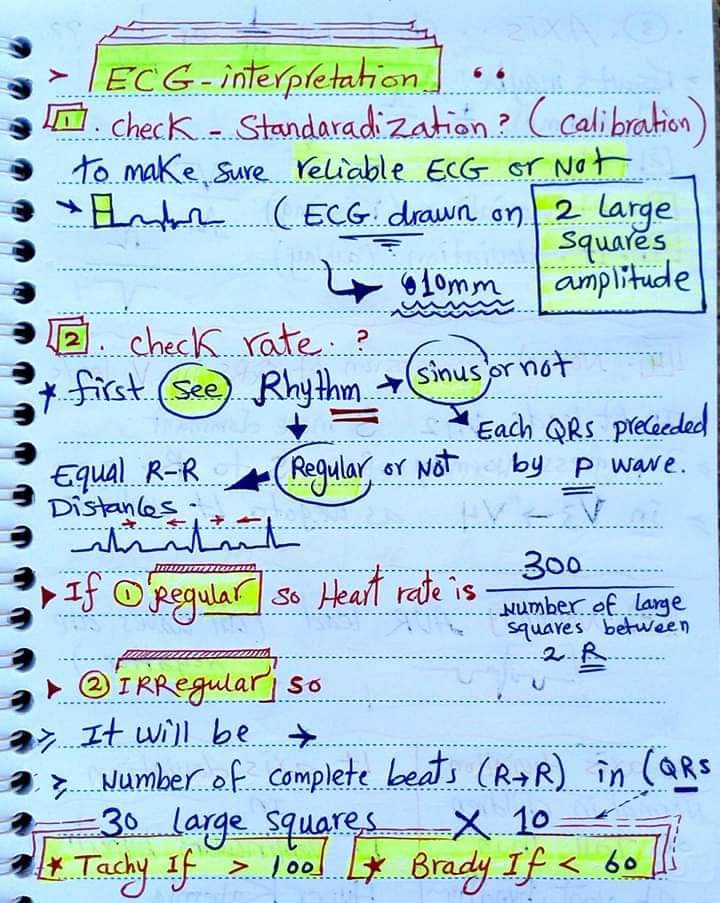 > ECG-interpretation
1. check - Standaradization? (calibration)
To make sure reliable ECG or Not
→ (ECG drawn on 2 large squares amplitude
10mm
2. check rate. ?
* first see Rhythm → sinus or not
Each QRS preceeded
by P wave.
Regular or Not
Equal R-R
Distances
If ① Regular so Heart rate is 300
Number of large
squares between
2 R
② IRRegular so
> It will be →
> Number of complete beats (R→R) in (QRS
30 large squares X 10
* Tachy If > 100 * Brady If < 60